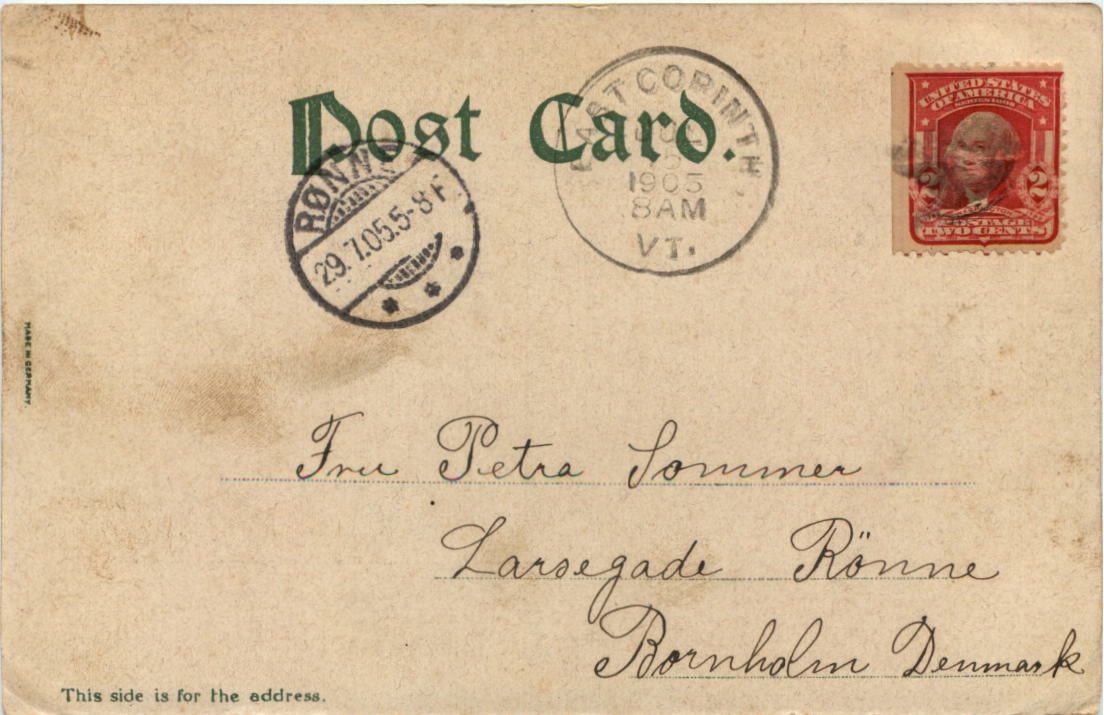 Post Card.
EAST CORINTH
JUL
15
1905
8AM
VT.
UNITED STATES
OF AMERICA
SERIES 1902
2 2
POSTAGE
TWO CENTS
RØNNE
29.7.05.5-8 F
MADE IN GERMANY.
Fru Petra Sommer
Larsegade Rönne
Bornholm Denmark
This side is for the address.